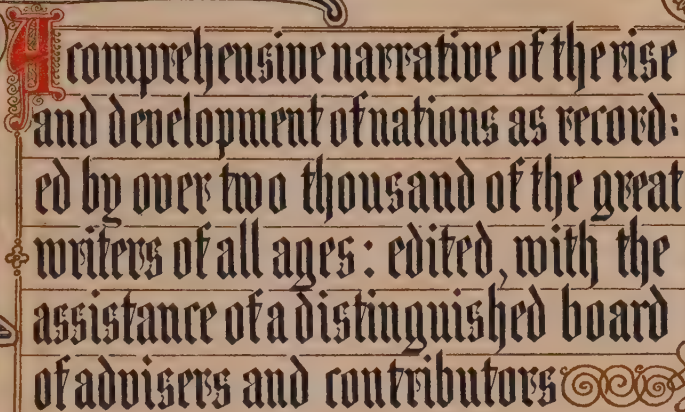 A comprehensive narrative of the rise
and development of nations as record:
ed by over two thousand of the great
writers of all ages: edited, with the
assistance of a distinguished board
of advisers and contributors